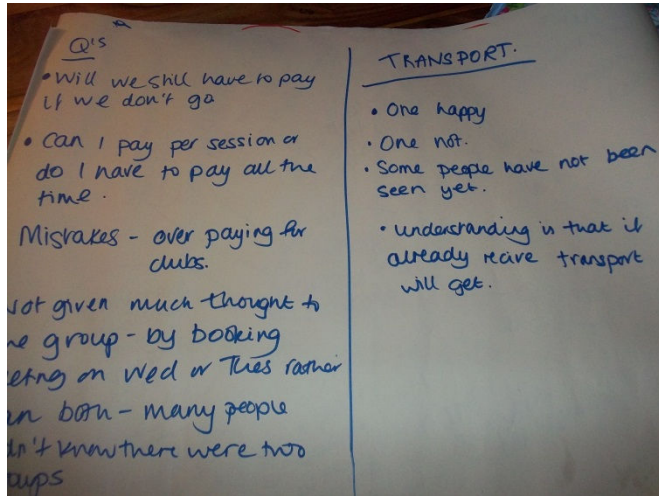 Q's
• Will we still have to pay
if we don't go
• Can I pay per session or
do I have to pay all the
time.
Mistakes - over paying for
clubs.
given much thought to
group - by booking
on Wed or Tues rather
both - many people
know there were two
TRANSPORT.
• One happy
• One not.
• Some people have not been
seen yet.
• understanding is that if
already recive transport
will get.